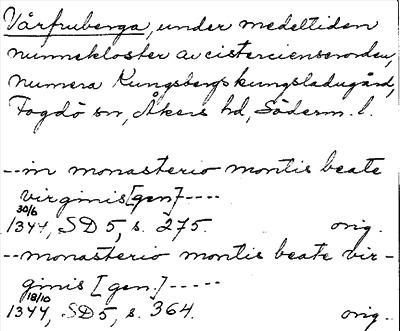 Vårfruberga, under medeltiden
nunnekloster av cistercienserorden,
numera Kungsbergs kungsladugård,
Fogdö sn, Åkers hd, Söderm. l.
--in monasterio montis beate
virginis [gen] ----
30/6
1344, SD 5, s. 275. orig.
--monasterio montis beate vir-
ginis [gen.] -----
18/10
1344, SD 5, s. 364. orig.